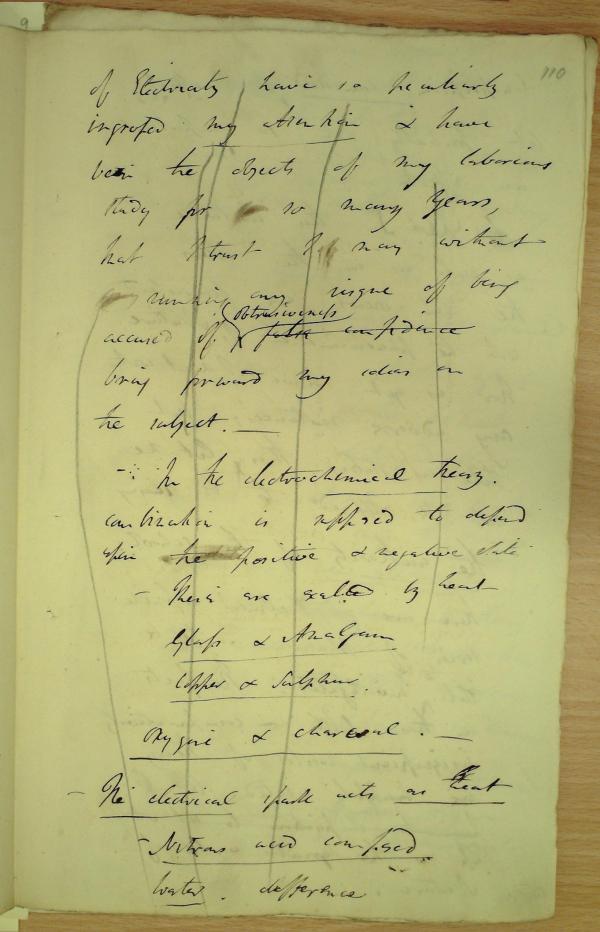 9
110
of Electricity have so peculiarly
ingrossed my attention & have
been the objects of my laborious
study for so many years,
that I trust I may without
running any risque of being
obtrusiveness
accused of false confidence
bring forward my ideas on
the subject. —
In the electrochemical theory.
combination is supposed to depend
upon the positive & negative state
– These are exalted by heat
Glass & Amalgam
Copper & Sulphur.
Oxygene & charcoal. —
– The electrical spark acts as heat
– Nitrous acid composed
Water. difference